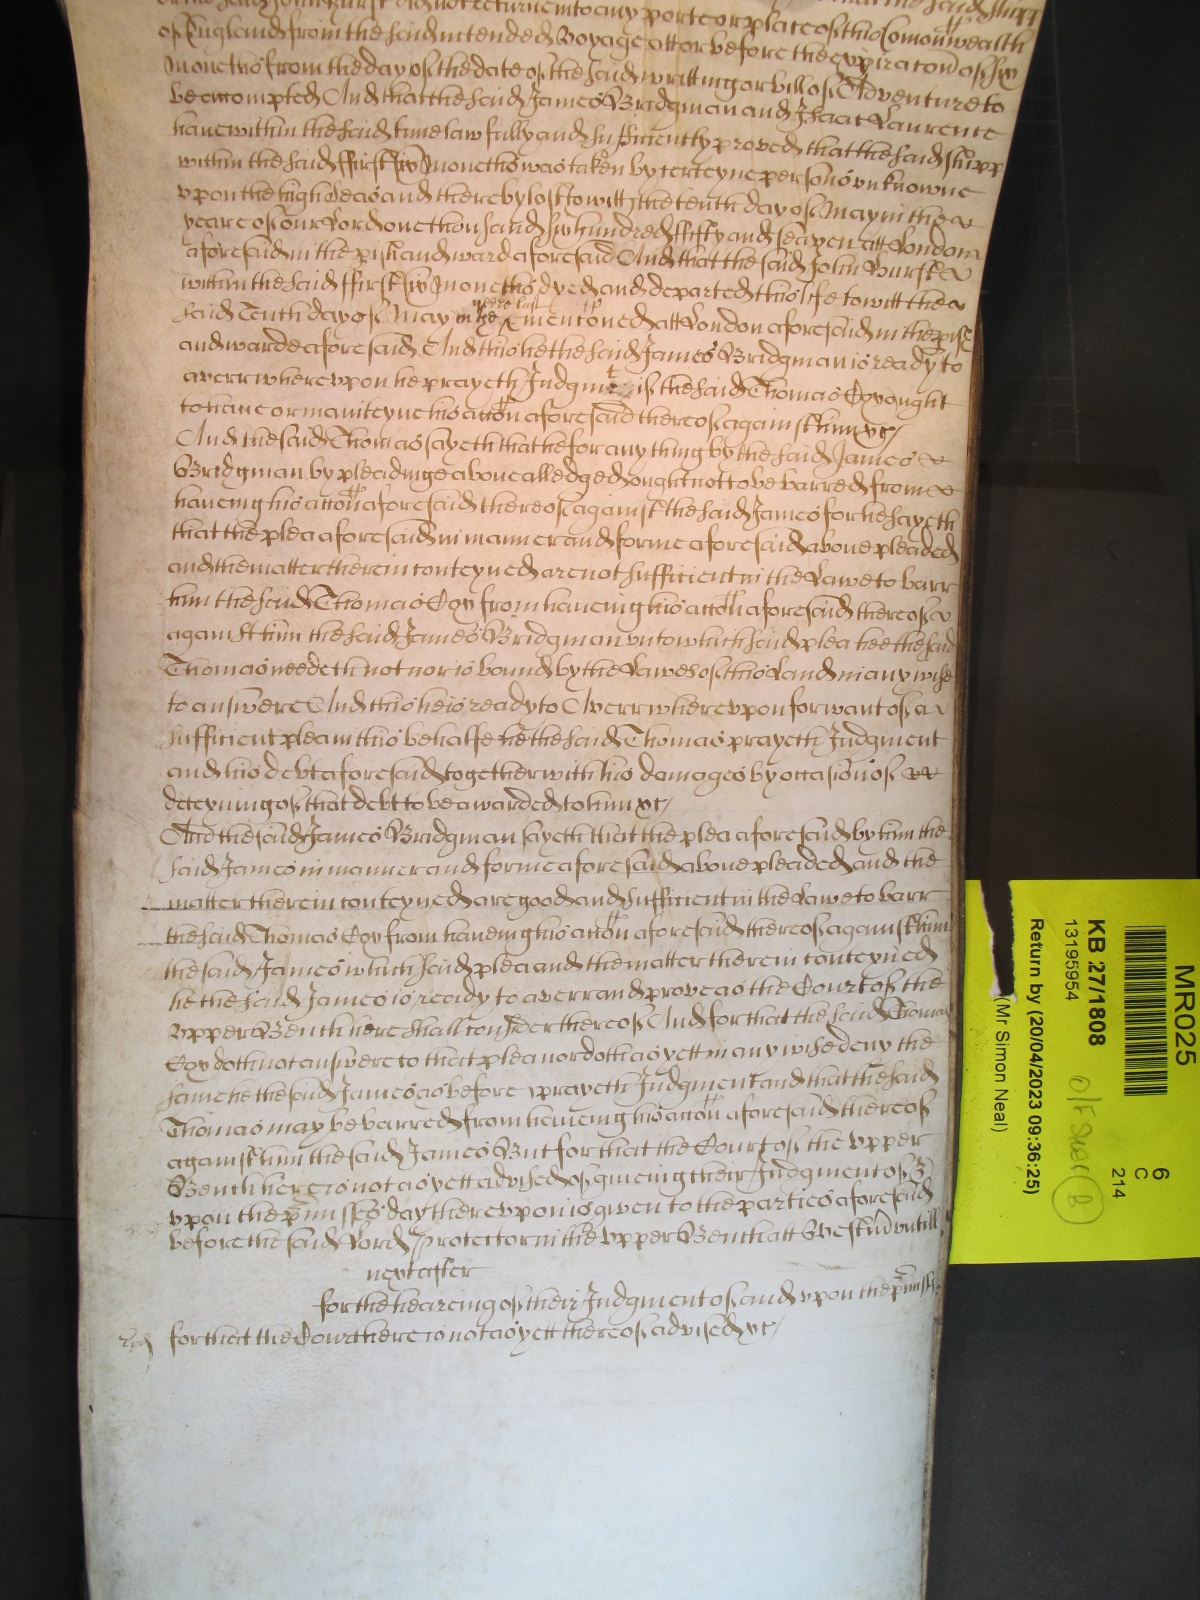 or the said John Hurst did not returne into any porte or place of this Comonwealth
of England from the said intended Voyage att or before the expiracon of six
monethes from the day of the date of the said writting or bill of Adventure to
be accompted And that the said James Bridgman and Isaac Laurence
have within the said time lawfully and sufficiently proved that the said shipp
within the said ffirst six monethes was taken by certeyne persons unknowne
upon the high Seas and thereby lost to witt the tenth day of May in the
yeare of our Lord one thousand six hundred ffifty and seaven att London
aforesaid in the pish and ward aforesaid And that the said John Hurst
within the said ffirst six monethes dyed and departed this life to witt the
said Tenth day of May in the yeere last mencioned att London aforesaid in the pish
and warde aforesaid And this he the said James Bridgman is ready to
averr whereupon he prayeth Judgmt if the said Thomas Coxe ought
to have or mainteyne his accon aforesaid thereof against him &c/
And the said Thomas sayeth that he for any thing by the said James
Bridgman by pleadinge above alledged ought not to be barred from
haveing his accon aforesaid thereof against the said James for he sayeth
that the plea aforesaid in manner and forme aforesaid above pleaded
and the matter therein conteyned are not sufficient in the Lawe to barr
him the said Thomas Coxe from haveing his accon aforesaid thereof
against him the said James Bridgman unto which said plea hee the said
Thomas needeth not nor is bound by the Lawes of this Land in any wise
to answere And this he is ready to Averr whereupon for want of a
sufficient plea in this behalfe he the said Thomas prayeth Judgment
and his debt aforesaid together with his damages by occasion of
deteyning of that debt to be awarded to him &c/
And the said James Bridgman sayeth that the plea aforesaid by him the
said James in manner and forme aforesaid above pleaded and the
matter therein conteyned are good and sufficient in the Lawe to barr
the said Thomas Coxe from haveing his accon aforesaid thereof against him
the said James which said plea and the matter therein conteyned
he the said James is ready to averr and prove as the Court of the
Upper Bench here shall consider thereof And for that the said Thomas
Coxe doth not answere to that plea nor doth as yett in any wise deny the
same he the said James as before prayeth Judgment and that the said
Thomas may be barred from haveing his accon aforesaid thereof
against him the said James But for that the Court of the Upper
Bench here is not as yett advised of giveing their Judgment of &
upon the pmisses day thereupon is given to the parties aforesaid
before the said Lord Protector in the Upper Bench att Westmr untill
next after
for the heareing of their Judgment of and upon the pmisses
for that the Court here is not as yett thereof advised &c/
MR025
KB 27/1808
13195954
6
C
214
Return by (20/04/2023 09:36:25)
(Mr Simon Neal)